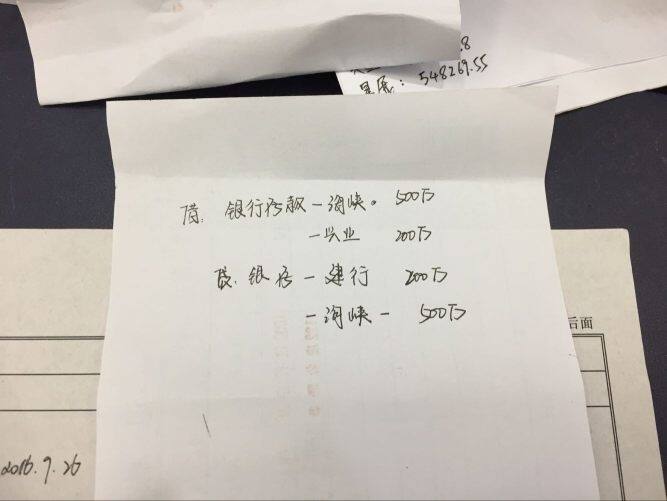 8
昱晟: 548269.55
借: 银行存款 — 海峡。 500万
— 兴业 200万
贷: 银存 — 建行 200万
— 海峡 — 500万
后面
2016.9.26